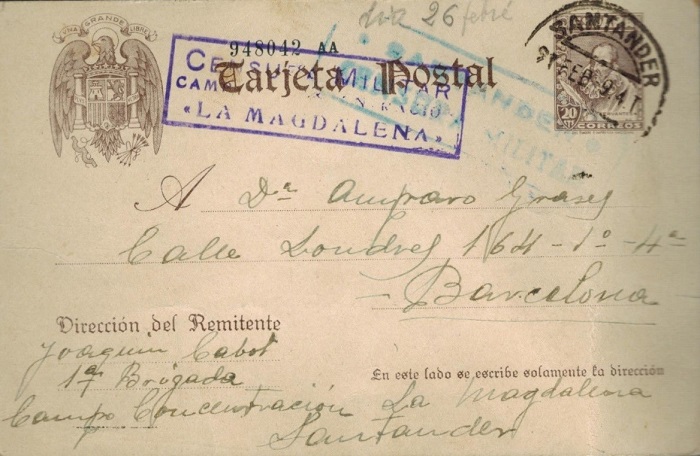 26
UNA GRANDE LIBRE
948042 AA
Tarjeta Postal
CENSURA MILITAR
CAMPO CONCENTRACIÓN
«LA MAGDALENA»
SANTANDER
CENSURA MILITAR
SANTANDER
FEB 9 41
20
CTS
CORREOS
A Dª Amparo Grases
Calle Londres 164-1º-4ª
Barcelona
Dirección del Remitente
Joaquin Cabot
Brigada
En este lado se escribe solamente la dirección
Campo Concentración La Magdalena
Santander